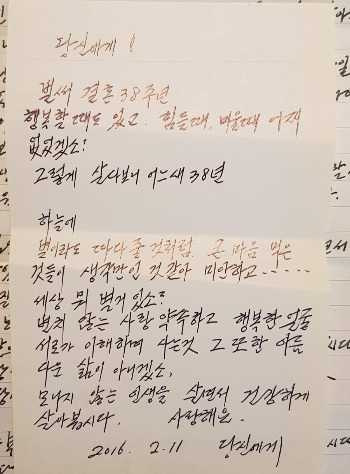 당신에게!
벌써 결혼 38주년
행복할때도 있고, 힘들때, 미울때 어찌
없었겠소!
그렇게 살다보니 어느새 38년
하늘에
별이라도 따다 줄것처럼, 큰 마음 먹은
것들이 생각만인것 같아 미안하고......
세상 뭐 별거 있소?
변치 않는 사랑 약속하고 행복한 얼굴
서로가 이해하며 사는것 그 또한 아름
다운 삶이 아니겠소,
모나지 않는 인생을 살면서 건강하게
살아봅시다. 사랑해요.
2016. 2. 11 당신에게